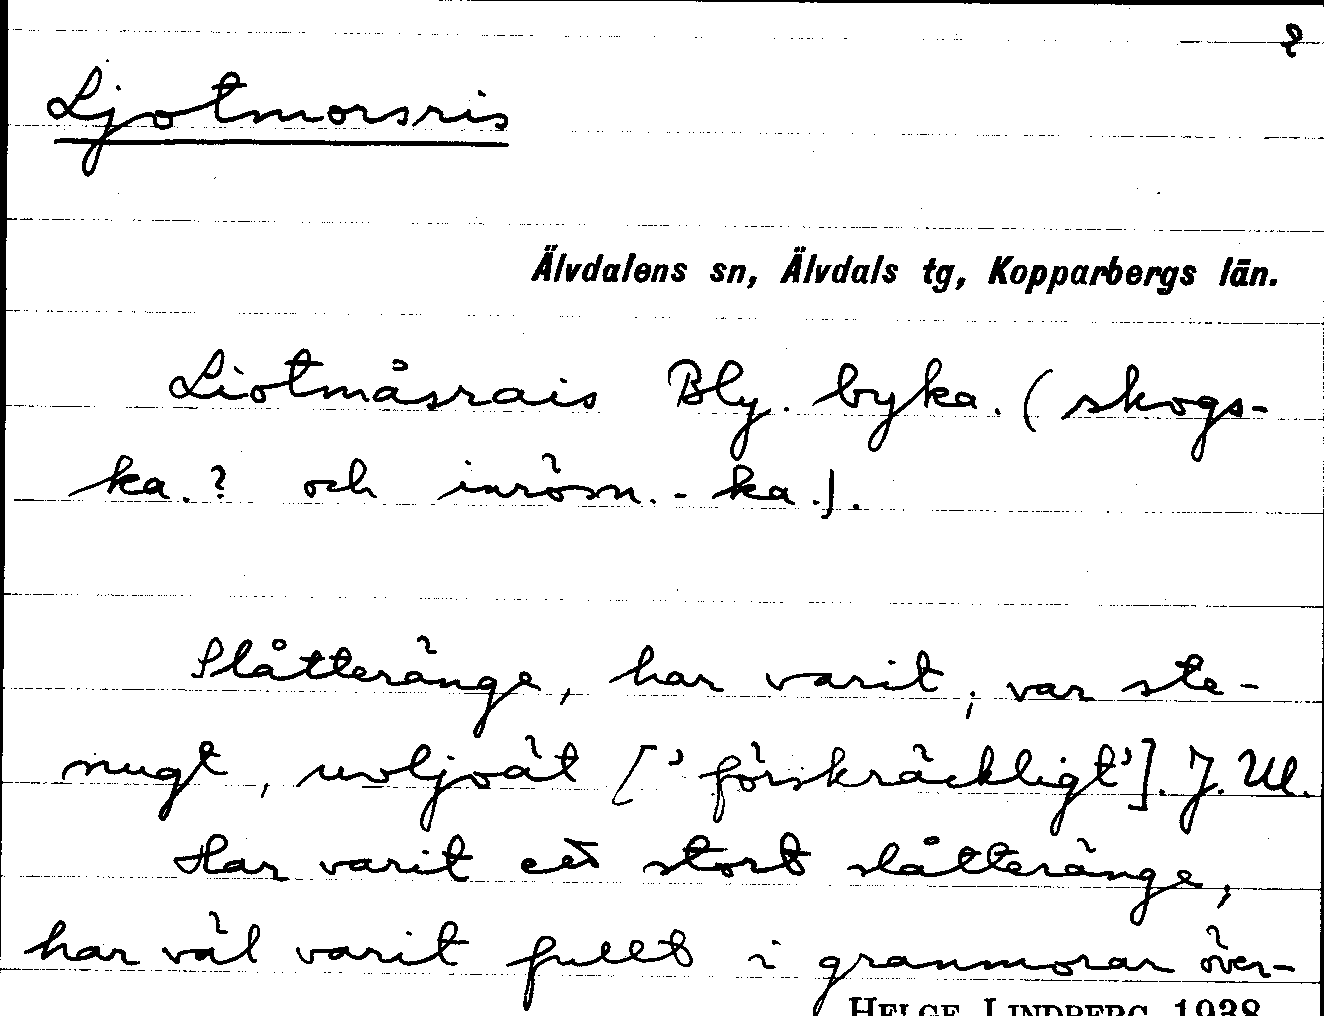 2
Ljotmorsris
Älvdalens sn, Älvdals tg, Kopparbergs län.
Liotmåsrais Bly. byka. (skogs-
ka.? och inröm.-ka.).
Slåtteränge, har varit, var ste-
nugt, uvoljoät [’förskräckligt’]. J. Ul.
Har varit ett stort slåtteränge,
har väl varit fullt i granmorar över-
HELGE LINDBERG 1938